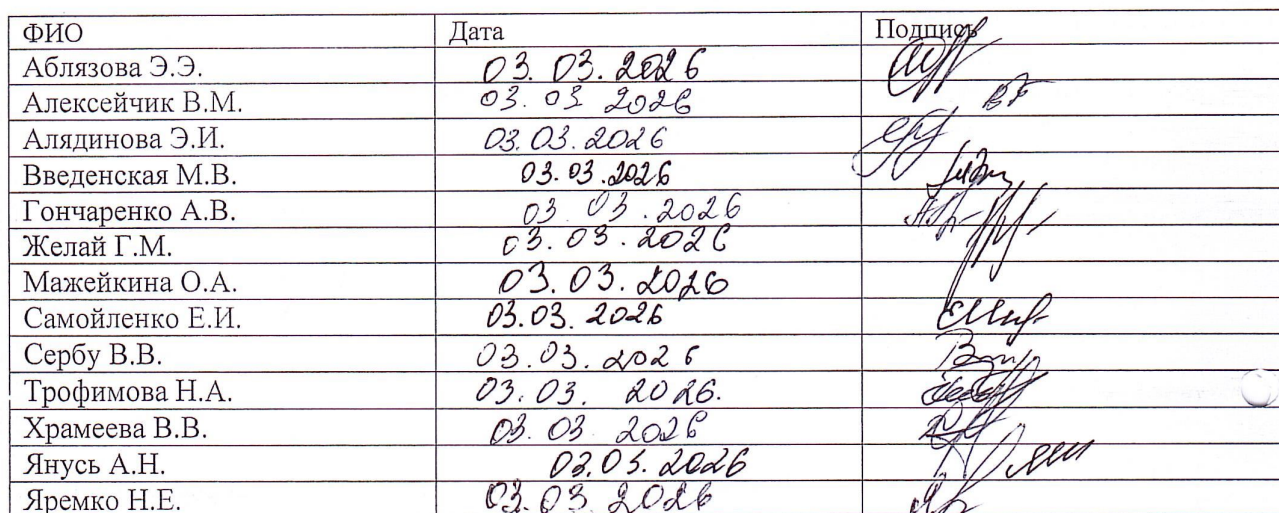 ФИО Дата Подпись
Аблязова Э.Э. 03.03.2026
Алексейчик В.М. 03.03 2026
Алядинова Э.И. 03.03.2026
Введенская М.В. 03.03.2026
Гончаренко А.В. 03.03.2026
Желай Г.М. 03.03.2026
Мажейкина О.А. 03.03.2026
Самойленко Е.И. 03.03.2026
Сербу В.В. 03.03.2026
Трофимова Н.А. 03.03. 2026.
Храмеева В.В. 03.03 2026
Янусь А.Н. 03.03.2026
Яремко Н.Е. 03.03.2026